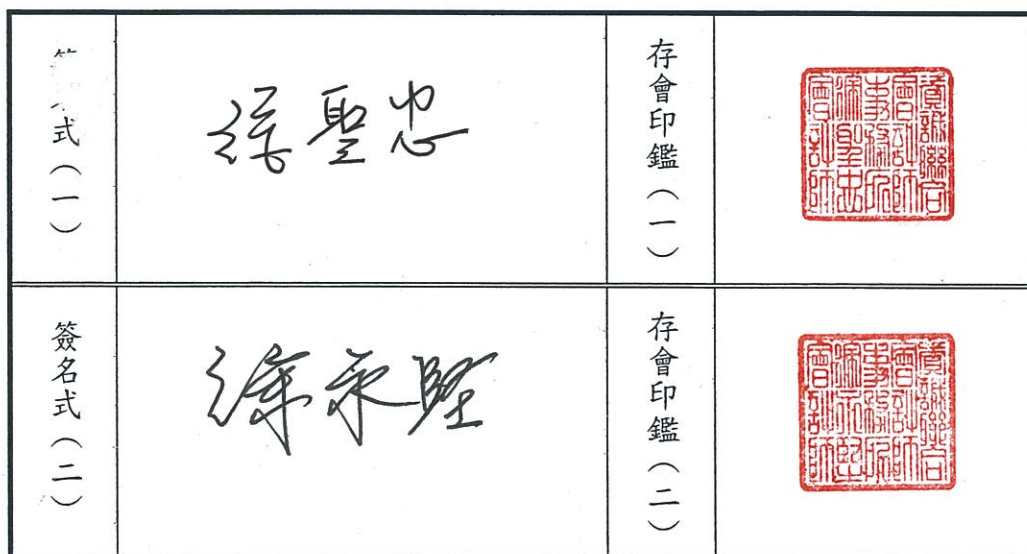 式（一）
徐聖忠
存會印鑑（一）
資誠聯合
會計師
事務所
徐聖忠
會計師
簽名式（二）
徐永堅
存會印鑑（二）
資誠聯合
會計師
事務所
徐永堅
會計師